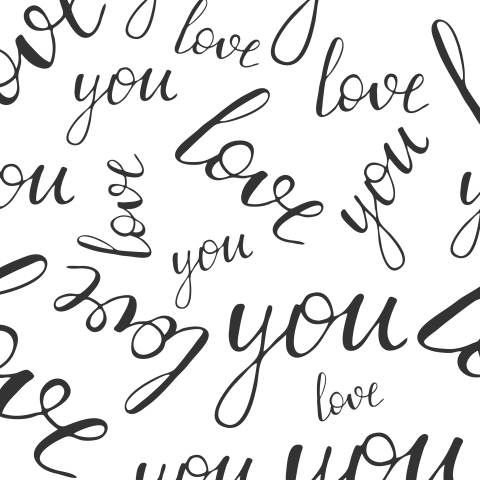 love
love
you
love
love
you
you
love
you
love
you
love
love
you
you